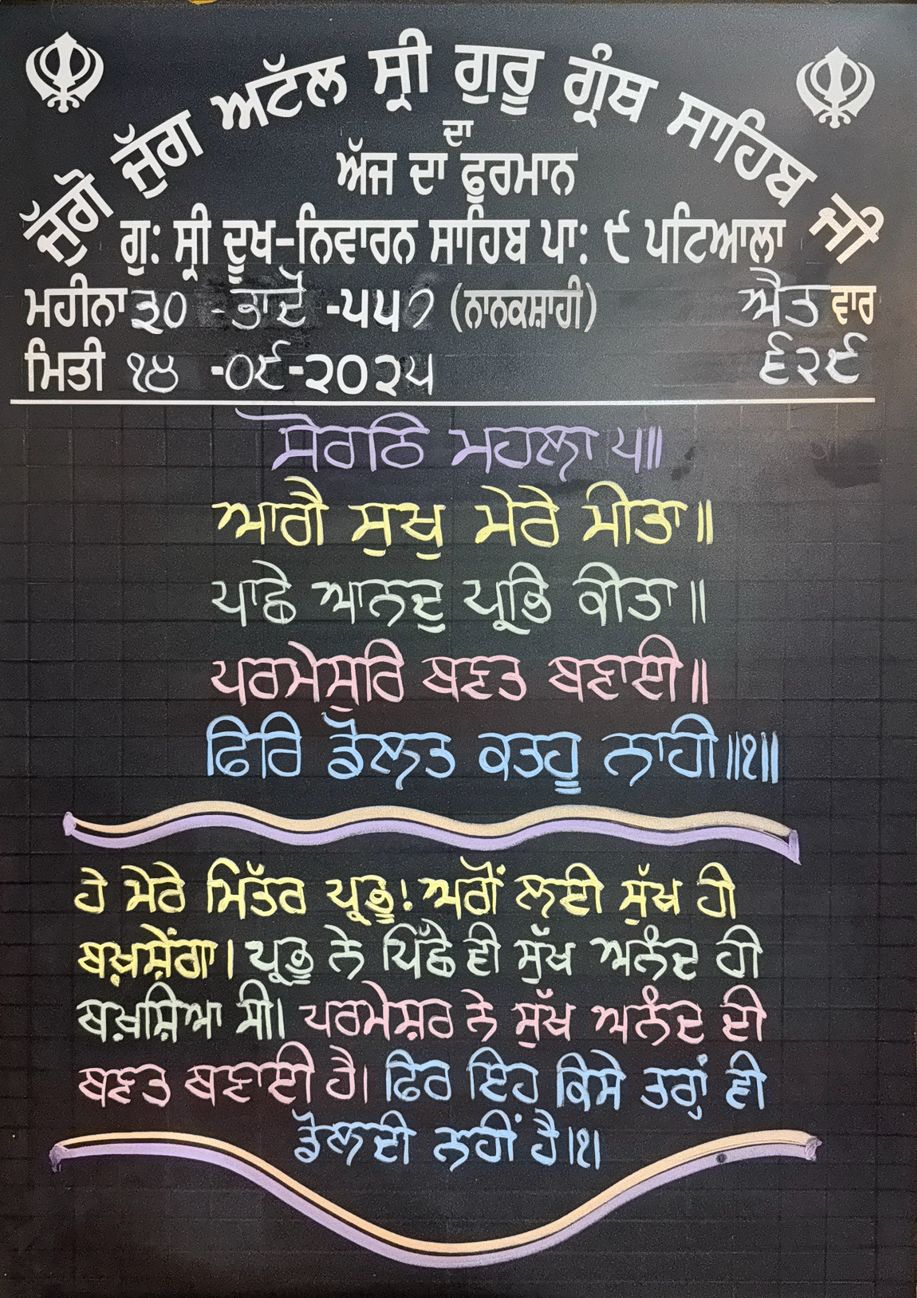 ਜੁੱਗੋ ਜੁੱਗ ਅਟੱਲ ਸ੍ਰੀ ਗੁਰੂ ਗ੍ਰੰਥ ਸਾਹਿਬ ਜੀ
ਦਾ
ਅੱਜ ਦਾ ਫੁਰਮਾਨ
ਗੁ: ਸ੍ਰੀ ਦੂਖ-ਨਿਵਾਰਨ ਸਾਹਿਬ ਪਾ: ੯ ਪਟਿਆਲਾ
ਮਹੀਨਾ ੩੦ -ਭਾਦੋਂ -੫੫੭ (ਨਾਨਕਸ਼ਾਹੀ) ਐਤ ਵਾਰ
ਮਿਤੀ ੧੪ -੦੯-੨੦੨੫ ੬੨੯
ਸੋਰਠਿ ਮਹਲਾ ੫॥
ਆਗੈ ਸੁਖੁ ਮੇਰੇ ਮੀਤਾ॥
ਪਾਛੇ ਆਨਦੁ ਪ੍ਰਭਿ ਕੀਤਾ॥
ਪਰਮੇਸੁਰਿ ਬਣਤ ਬਣਾਈ॥
ਫਿਰਿ ਡੋਲਤ ਕਤਹੂ ਨਾਹੀ॥੧॥
ਹੇ ਮੇਰੇ ਮਿੱਤਰ ਪ੍ਰਭੂ! ਅਗੋਂ ਲਈ ਸੁੱਖ ਹੀ
ਬਖ਼ਸ਼ੇਂਗਾ। ਪ੍ਰਭੂ ਨੇ ਪਿੱਛੇ ਵੀ ਸੁੱਖ ਅਨੰਦ ਹੀ
ਬਖ਼ਸ਼ਿਆ ਸੀ। ਪਰਮੇਸ਼ਰ ਨੇ ਸੁੱਖ ਅਨੰਦ ਦੀ
ਬਣਤ ਬਣਾਈ ਹੈ। ਫਿਰ ਇਹ ਕਿਸੇ ਤਰ੍ਹਾਂ ਵੀ
ਡੋਲਦੀ ਨਹੀਂ ਹੈ।੧।